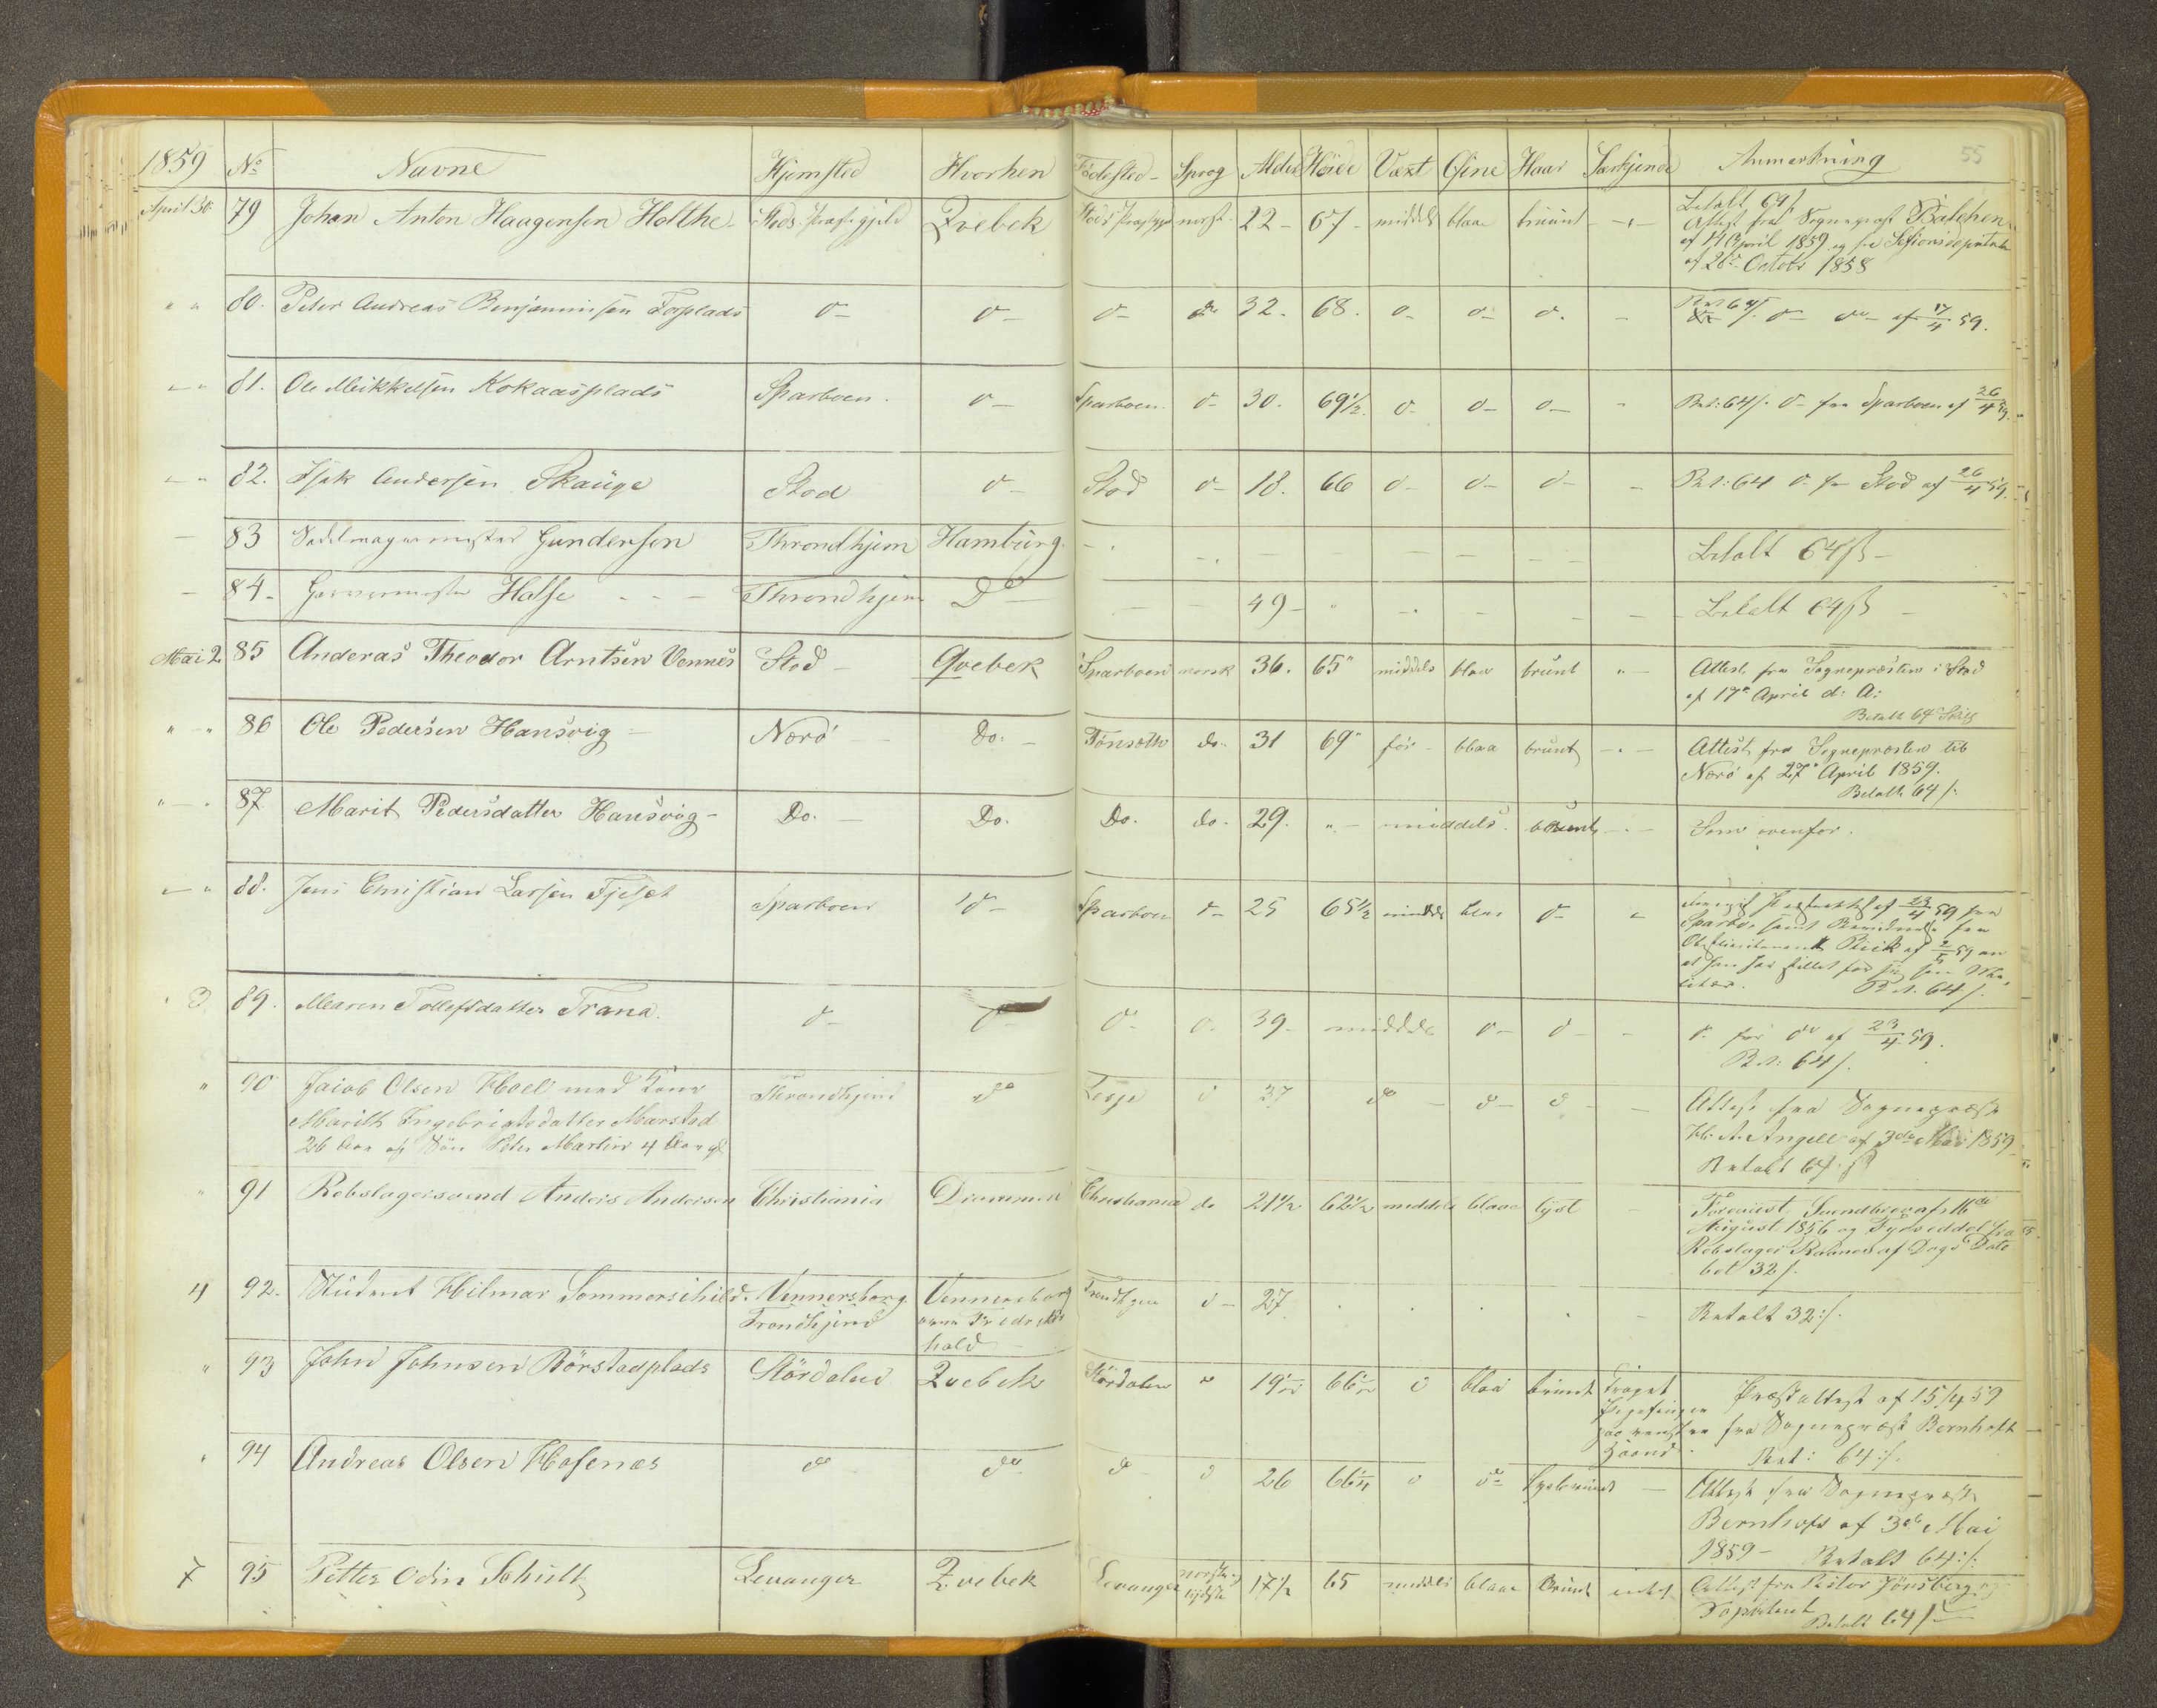 55
1859 No Navne Hjemsted Hvorhen Fødested Sprog Alder Høide Væxt Øine Haar Særkjende Anmærkning
April 30 79 Johan Anton Haagensen Holthe Stods Præstegjeld Qvebek Stods Præstegj norsk 22 67 middels blaa bruunt Betalt 64 s
Attest fra Sogneprest Balchen
af 14 April 1859 og fra Sessionsdeputat
af 26 Octobr 1858
" " 80. Peter Andreas Benjaminsen Forplads do do do do 32. 68. do do do Bet 64 s. do do af 17/4 59.
" " 81. Ole Mikkelsen Kokaasplads Sparboen. do Sparboen. do 30. 69½ do do do Bet: 64 s. do fra Sparboen af 26/4 59.
" " 82. Isak Andersen Skauge Stod do Stod do 18. 66 do do do Bet: 64 do fra Stod af 26/4 59.
83 Sadelmagermester Gundersen Throndhjem Hamburg. Betalt 64 s
84 Garvermester Halse Throndhjem Do 49 Betalt 64 s
Mai 2 85 Anderas Theodor Arntsen Vennes Stod Qvebek Sparboen norsk 36. 65" middels blaa brunt Attest fra Sognepræsten i Stod
af 17 April d: A:
Betalt 64 Skill
" " 86 Ole Pedersen Hansvig Nærö Do. Tönsæth do. 31 69" før blaa brunt Attest fra Sognepræsten til
Nærö af 27 April 1859.
Betalt 64 s.
" " 87 Marit Pedersdatter Hansvig Do. Do. Do. do. 29. " middels. brunt Som ovenfor.
" " 88. Jens Christian Larsen Fjeset Sparboen do Sparboen do 25 65½ middels blaa do af 23/4 59 fra
Sparbo, samt fra
af 2/5 59 om
at han har stillet for sig
Bet. 64 s.
3 89. Maren Tollefsdatter Trana. do do do do 39 middels do do do fra do af 23/4 59.
Bet: 64 s.
" 90 Jacob Olsen Hoel med Kone Throndhjem do Lesje do 37 do do do Attest fra Sogneprest
Marith Engebrigtsdatter Marstad H. A. Angell af 3de Mai 1859
26 Aar og Søn Peter Martin 4 Aar gl Betalt 64 s
" 91 Rebslagersvend Anders Andersen Christiania Drammen Christiania do 21½ 62½ middels blaae lyst Forevist Svendebrev af 16de
August 1856 og Synseddel fra
Rebslager af Dags Dato
bet 32 s.
4 92. Student Hilmar Sommerschild. Vennersborg Vennersborg Trondhjem do 27 Betalt 32 s.
Trondhjem over Fredriks
hald
" 93 John Johnsen Börstadplads Stördalen Qvebek Stördalen do 19½ 66½ do blaa brunt Kroget Præstattest af 15/4 59
Pegefinger
paa venstre fra Sogneprest Bernhoft
Haand. Bet: 64 s.
" 94 Andreas Olsen Hofenæs do do do do 26 66¼ do do lysbrunt Attest fra Sogneprest
Bernhoft af 3de Mai
1859 Betalt 64 s.
7 95 Petter Odin Schult Levanger Qvebek Levanger norsk og tydsk 17½ 65 middels blaae Brunt intet Attest fra Pastor Jönsberg og
Betalt 64 s